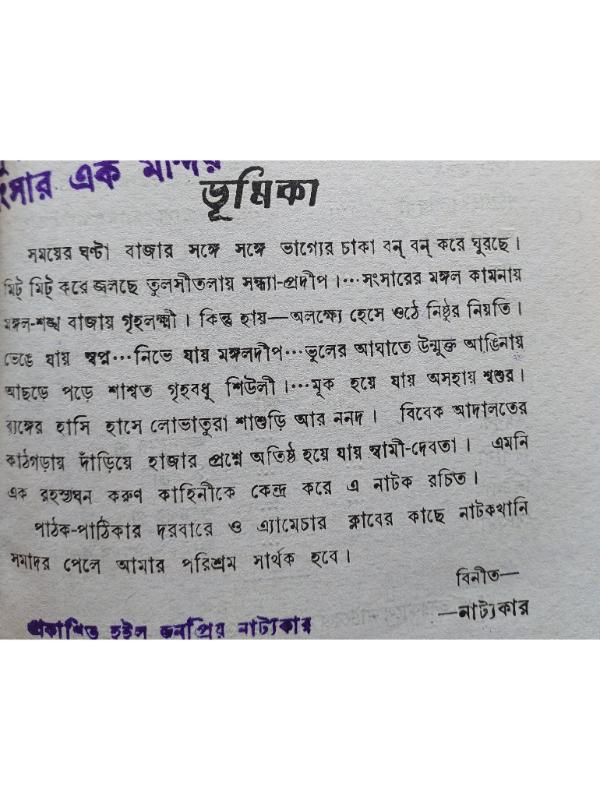 ংসার এক
ভূমিকা
সময়ের ঘণ্টা বাজার সঙ্গে সঙ্গে ভাগ্যের চাকা বন্ বন্ করে ঘুরছে।
মিট্ মিট্ করে জ্বলছে তুলসীতলায় সন্ধ্যা-প্রদীপ।...সংসারের মঙ্গল কামনায়
মঙ্গল-শঙ্খ বাজায় গৃহলক্ষ্মী। কিন্তু হায়—অলক্ষ্যে হেসে ওঠে নিষ্ঠুর নিয়তি।
ভেঙে যায় স্বপ্ন...নিভে যায় মঙ্গলদীপ...ভুলের আঘাতে উন্মুক্ত আঙিনায়
আছড়ে পড়ে শাশ্বত গৃহবধূ শিউলী।...মূক হয়ে যায় অসহায় শ্বশুর।
ব্যঙ্গের হাসি হাসে লোভাতুরা শাশুড়ি আর ননদ। বিবেক আদালতের
কাঠগড়ায় দাঁড়িয়ে হাজার প্রশ্নে অতিষ্ঠ হয়ে যায় স্বামী-দেবতা। এমনি
এক রহস্যঘন করুণ কাহিনীকে কেন্দ্র করে এ নাটক রচিত।
পাঠক-পাঠিকার দরবারে ও এ্যামেচার ক্লাবের কাছে নাটকখানি
সমাদর পেলে আমার পরিশ্রম সার্থক হবে।
বিনীত—
—নাট্যকার
প্রকাশিত হইল জনপ্রিয় নাট্যকার